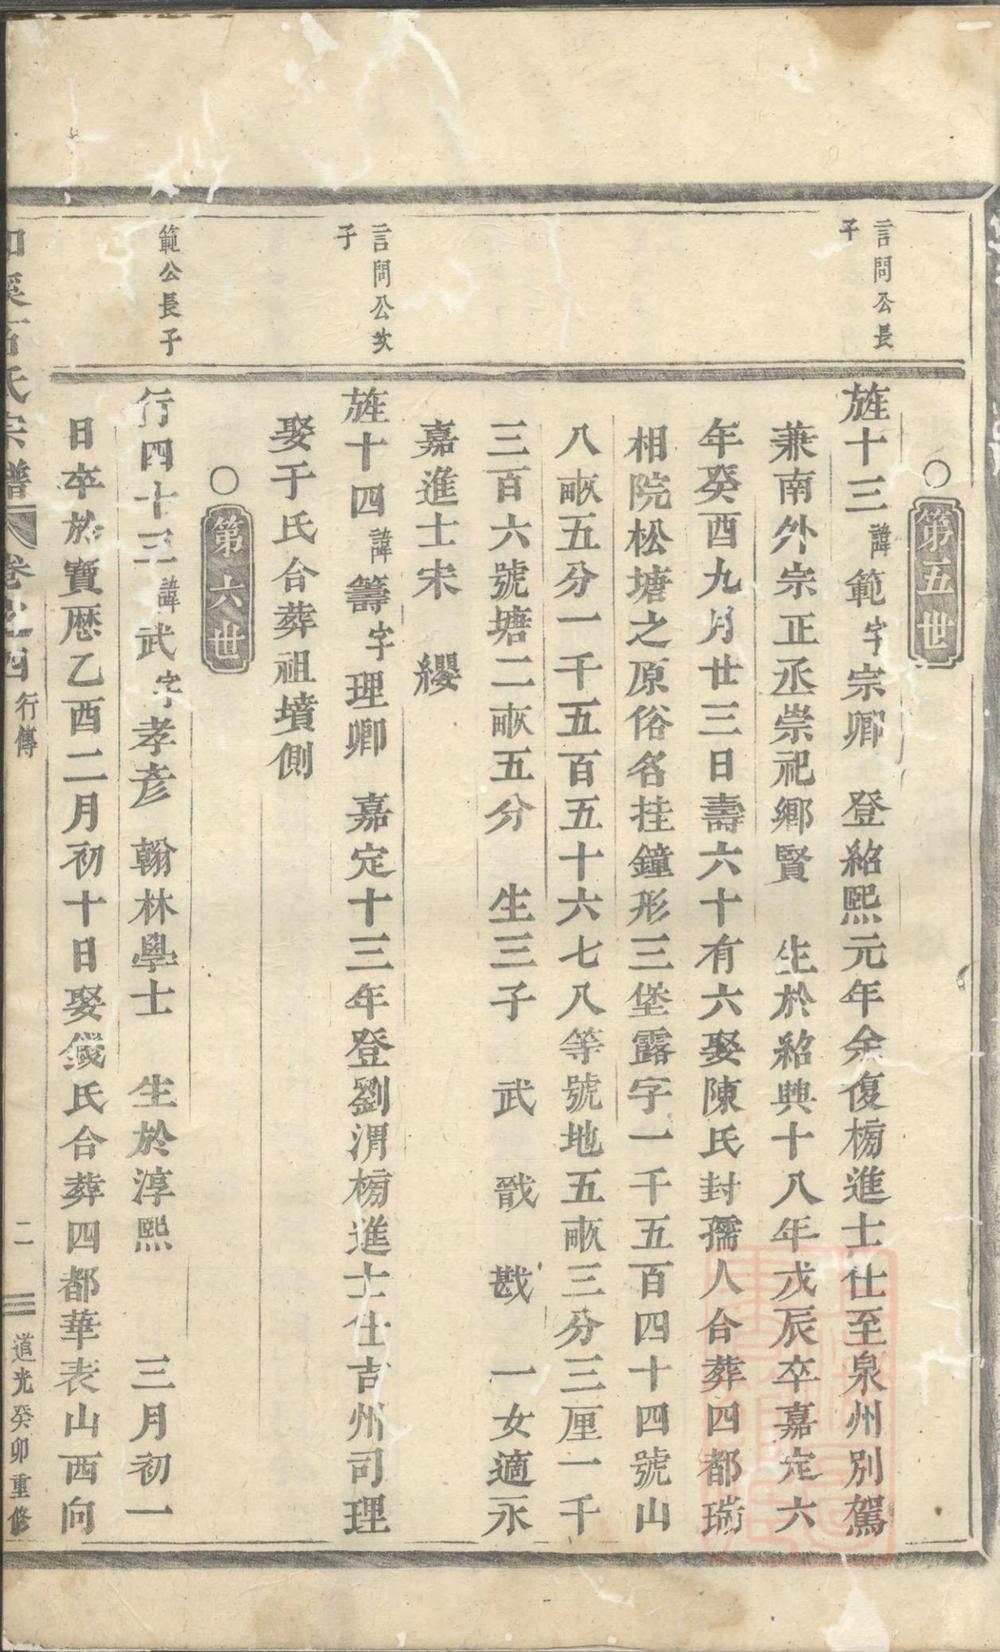 ○第五世
言問公長
子
旌十三諱範字宗卿　登紹熙元年余復榜進士仕至泉州別駕
兼南外宗正丞崇祀鄉賢　生於紹興十八年戊辰卒嘉定六
年癸酉九月廿三日壽六十有六娶陳氏封孺人合葬四都瑞
相院松塘之原俗名挂鐘形三堡露字一千五百四十四號山
八畝五分一千五百五十六七八等號地五畝三分三厘一千
三百六號塘二畝五分　生三子　武　戩　戡　一女適永
嘉進士宋　纓
言問公次
子
旌十四諱籌字理卿　嘉定十三年登劉渭榜進士仕吉州司理
娶于氏合葬祖墳側
○第六世
範公長子
行四十三諱武字孝彥　翰林學士　生於淳熙　　三月初一
日卒於寶歷乙酉二月初十日娶錢氏合葬四都華表山西向
氏宗譜　卷之四　行傳　二　道光癸卯重修